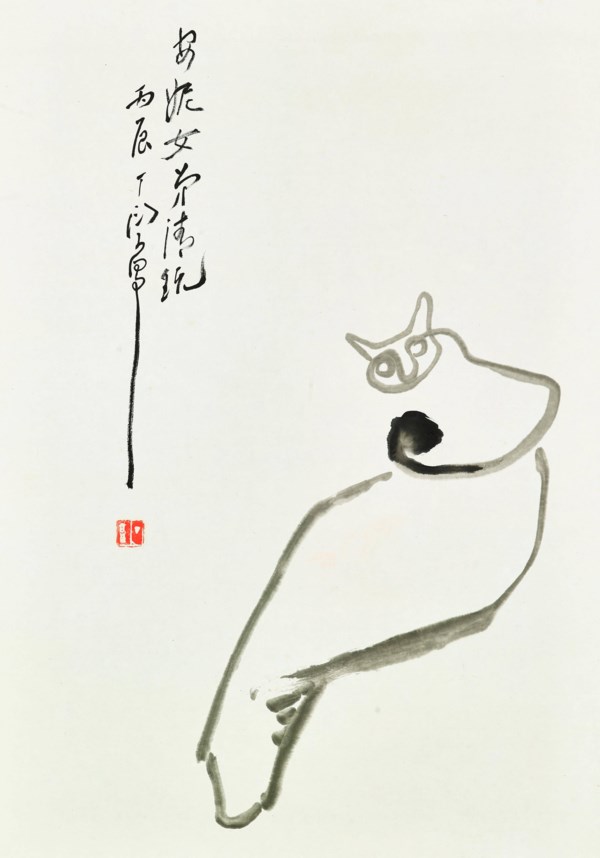 安妮女弟清玩
丙辰丁衍公寫